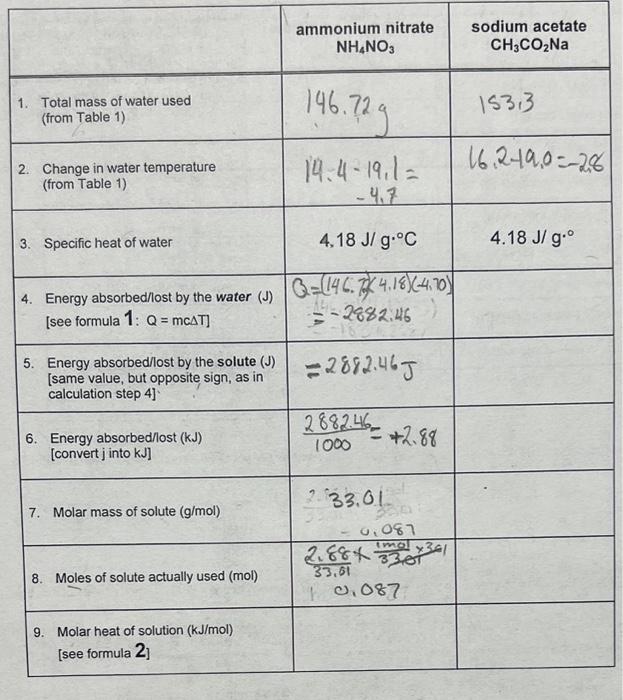 ammonium nitrate
NH₄NO₃
sodium acetate
CH₃CO₂Na
1. Total mass of water used
(from Table 1)
146.72 g
153.3
2. Change in water temperature
(from Table 1)
14.4 - 19.1 =
-4.7
16.2-19.0=-2.8
3. Specific heat of water
4.18 J/ g·°C
4.18 J/ g·°
4. Energy absorbed/lost by the water (J)
[see formula 1: Q = mcΔT]
Q=(146.7)(4.18)(-4.70)
= -2882.46
5. Energy absorbed/lost by the solute (J)
[same value, but opposite sign, as in
calculation step 4]
= 2882.46 J
6. Energy absorbed/lost (kJ)
[convert j into kJ]
2882.46
1000
= +2.88
7. Molar mass of solute (g/mol)
33.01
0.087
8. Moles of solute actually used (mol)
2.88 x 1mol
33.01
0.087
9. Molar heat of solution (kJ/mol)
[see formula 2]